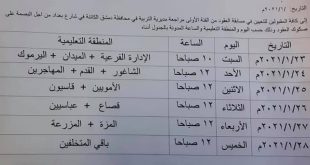 التاريخ: ٢٠٢١/١/
إلى كافة المقبولين للتعيين في مسابقة العقود من الفئة الأولى مراجعة مديرية التربية في محافظة دمشق الكائنة في شارع بغداد من أجل البصمة على
صكوك العقود وذلك حسب اليوم والمنطقة التعليمية والساعة المدونة بالجدول أدناه
التاريخ اليوم الساعة المنطقة التعليمية
٢٠٢١/١/٢٣م السبت ١٢ صباحا الإدارة الفرعية + الميدان + اليرموك
٢٠٢١/١/٢٤م الأحد ١٢ صباحا الشاغور + القدم + المهاجرين
٢٠٢١/١/٢٥م الاثنين ١٢ صباحا الأمويين + قاسيون
٢٠٢١/١/٢٦م الثلاثاء ١٢ صباحا قصاع + عباسيين
٢٠٢١/١/٢٧م الأربعاء ١٢ صباحا المزة + المزرعة
٢٠٢١/١/٢٨م الخميس ١٢ صباحا باقي المتخلفين